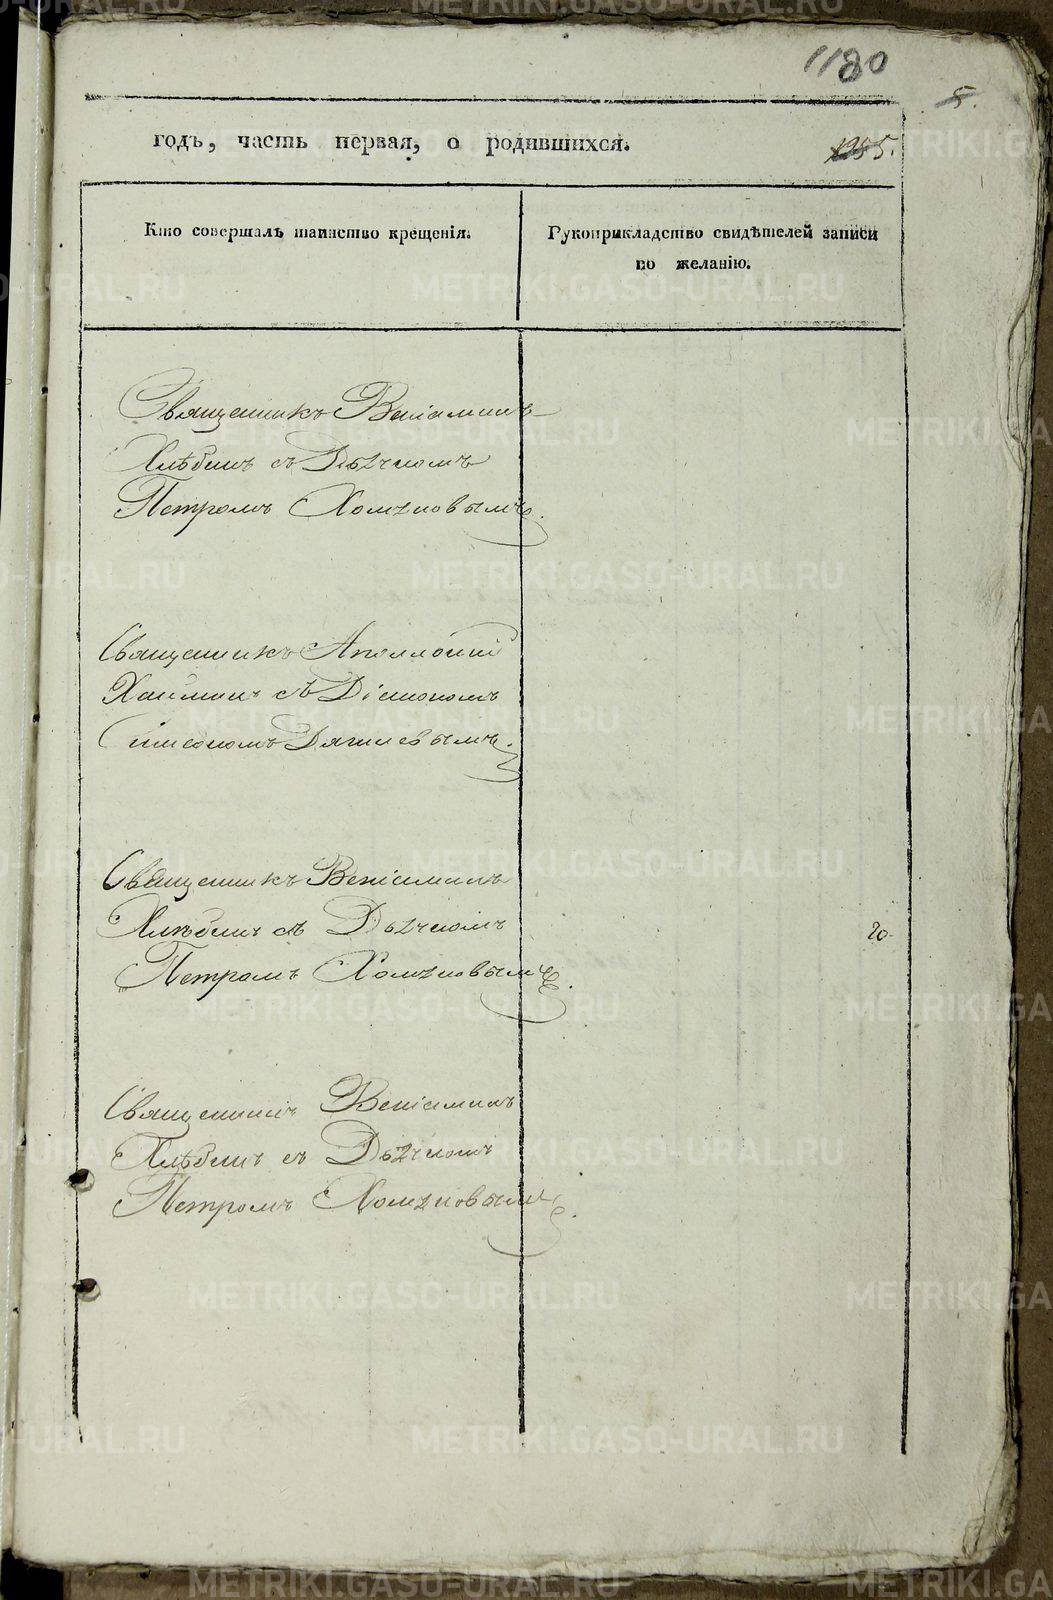 1180
5.
годъ, часть первая, о родившихся.
Кто совершалъ таинство крещенія.
Рукоприкладство свидѣтелей записи
по желанію.
Священникъ Веніаминъ
Хлѣбинъ съ Дьячкомъ
Петромъ
Священникъ Аполлоній
съ Діакономъ
Симеономъ Дягилевымъ.
Священникъ Веніаминъ
Хлѣбинъ съ Дьячкомъ
20.
Петромъ
Священникъ Веніаминъ
Хлѣбинъ съ Дьячкомъ
Петромъ
METRIKI.GASO-URAL.RU